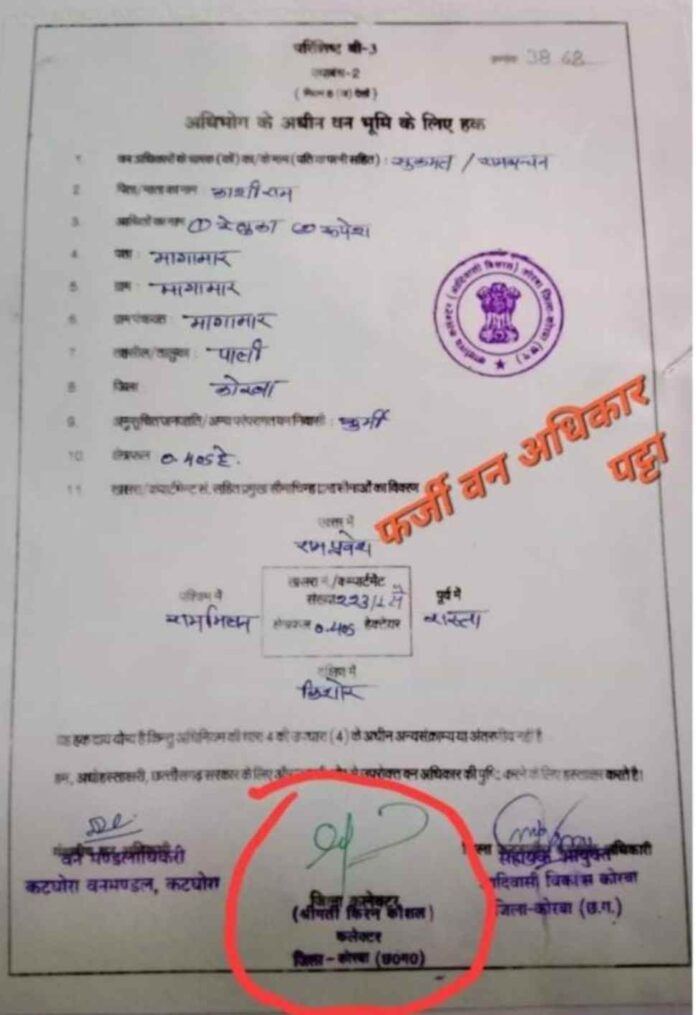 परिशिष्ट बी-3
38 68
उपाबंध-2
अधिभोग के अधीन वन भूमि के लिए हक
1. वन अधिकारों के धारक (कों) का/के नाम (पति या पत्नी सहित) :
2 पिता/माता का नाम काशीराम
3. आश्रितों का नाम ① रेणुका ② रूपेश
4. पता : मागामार
5. ग्राम : मागामार
6 ग्राम पंचायत : मागामार
7 तहसील/तालुका : पाली
8 जिला कोरबा
9. अनुसूचित जनजाति/अन्य परंपरागत वन निवासी : कुर्मी
10 क्षेत्रफल 0.405 हे.
11. खसरा/कंपार्टमेंट सं. सहित प्रमुख सीमाचिन्ह का विवरण
फर्जी वन अधिकार
पट्टा
उत्तर में
रामप्रवेश
पश्चिम में
खसरा नं./कम्पार्टमेंट
संख्या 223/1 में
क्षेत्रफल 0.405 हेक्टेयर
पूर्व में
रास्ता
दक्षिण में
किशोर
यह हक दाय योग्य है किन्तु अधिनियम की धारा 4 की उपधारा (4) के अधीन अन्यसंक्राम्य या अंतरणीय नहीं है
हम, अधोहस्ताक्षरी, छत्तीसगढ़ सरकार के लिए और उपरोक्त वन अधिकार की पुष्टि करने के लिए हस्ताक्षर करते है।
वन मण्डलाधिकारी
कटघोरा वनमण्डल, कटघोरा
जिला कलेक्टर
(श्रीमती किरन कौशल)
कलेक्टर
जिला - कोरबा (छ0ग0)
सहायक आयुक्त
आदिवासी विकास कोरबा
जिला-कोरबा (छ.ग.)